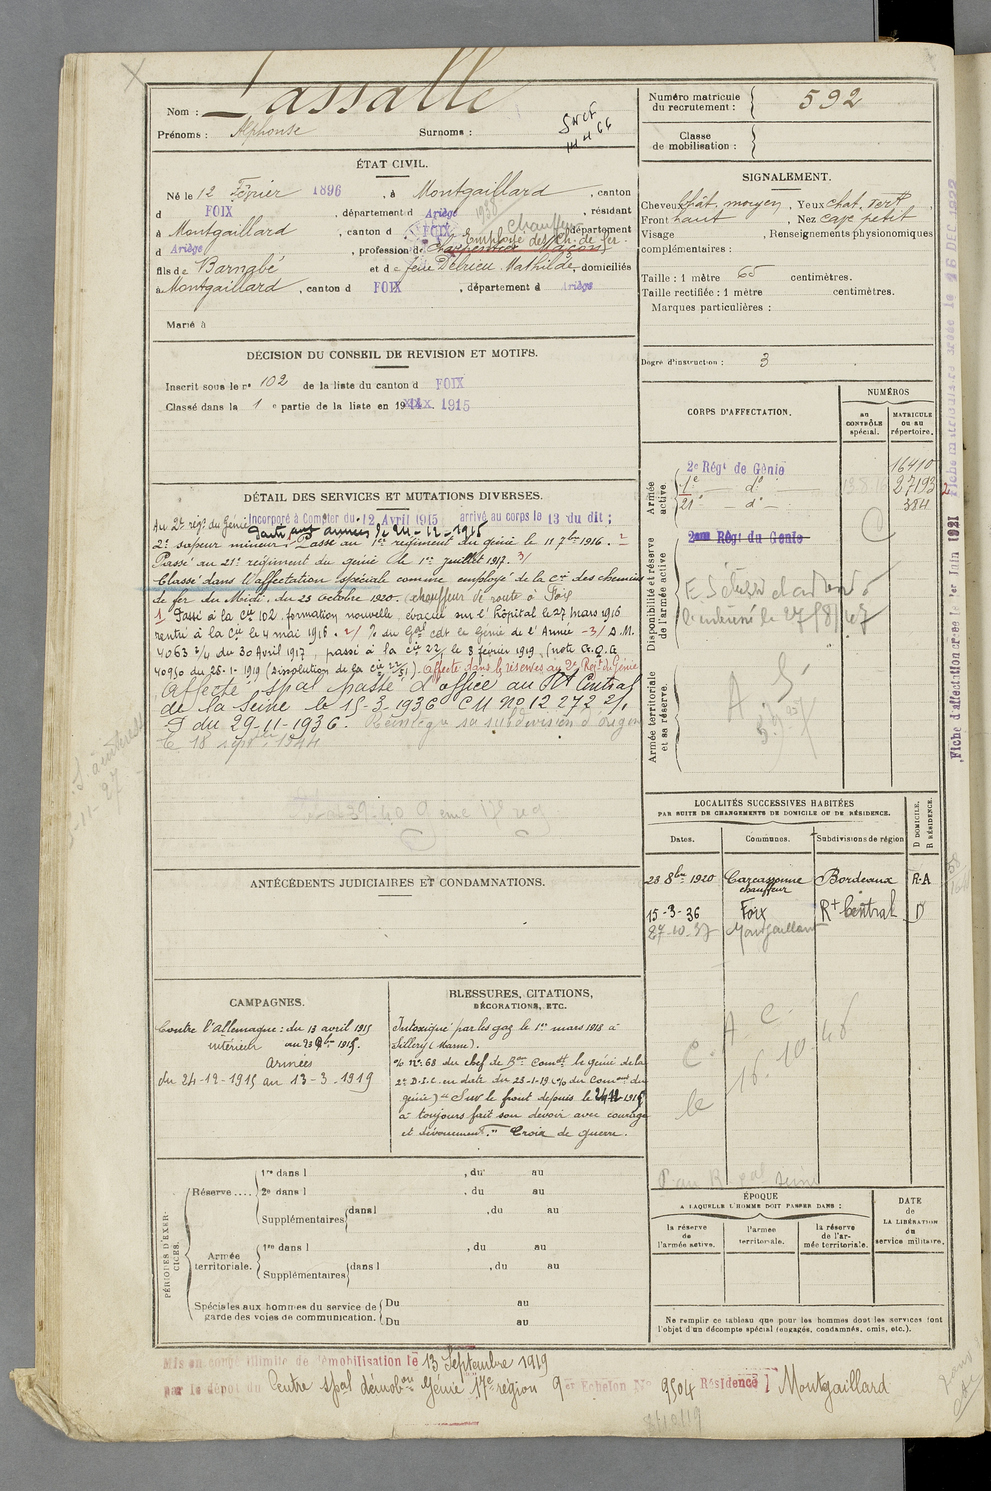 Nom : Lassalle
Prénoms : Alphonse Surnoms :
SNCF
Numéro matricule du recrutement : 592
Classe de mobilisation :
ÉTAT CIVIL.
Né le 12 Février 1896, à Montgaillard, canton
d FOIX, département d Ariège, résidant
à Montgaillard, canton d FOIX, département
d Ariège, profession de
Chauffeur
employé des ch. de fer.
fils de Barnabé et de feue Delrieu Mathilde, domiciliés
à Montgaillard, canton d FOIX, département d Ariège
Marié à
SIGNALEMENT.
Cheveux chât. moyen, Yeux chat. vert
Front haut, Nez cave petit
Visage , Renseignements physionomiques
complémentaires :
Taille : 1 mètre 65 centimètres.
Taille rectifiée : 1 mètre centimètres.
Marques particulières :
Degré d'instruction : 3
DÉCISION DU CONSEIL DE REVISION ET MOTIFS.
Inscrit sous le no 102 de la liste du canton d FOIX
Classé dans la 1e partie de la liste en 19 1915
DÉTAIL DES SERVICES ET MUTATIONS DIVERSES.
Au 2e régt du Génie Incorporé à Compter du 12 Avril 1915 arrivé au corps le 13 du dit ;
Parti aux armées le 24-12-1915
2e sapeur mineur. Passé au 1er régiment du génie le 11 7bre 1916. 2
Passé au 21e régiment du génie le 1er juillet 1917. 3/
Classé dans l'affectation spéciale comme employé de la Cie des chemins
de fer du Midi, du 23 octobre 1920. chauffeur de route à Foix
1 Passé à la Cie 102, formation nouvelle, évacué sur l'Hôpital le 27 mars 1916
rentré à la Cie le 4 mai 1916. 2/ % du Gal cdt le Génie de l'Armée - 3/ D.M.
4063 2/4 du 30 Avril 1917, passé à la Cie 22/ le 8 février 1919 (note G.Q.G
40950 du 25-1-1919 (dissolution de la Cie ) affecté dans les réserves au 2e Régt du Génie
Affecté spal passé d'office au Rt Central
de la Seine le 15-3-1936 CM No 12 272 2/.
I du 29-11-1936. Réintègre sa subdivision d'origine
le 18 septbre 1944
39-40
CORPS D'AFFECTATION.
NUMÉROS
AU CONTRÔLE spécial.
MATRICULE OU AU répertoire.
Armée active
2e Régt de Génie 16410
1e do 27193
21e do 384
Disponibilité et réserve de l'armée active
2ème Régt du Génie
Armée territoriale et sa réserve.
Fiche d'affectation créée le 1er Juin 1921
LOCALITÉS SUCCESSIVES HABITÉES
PAR SUITE DE CHANGEMENTS DE DOMICILE OU DE RÉSIDENCE.
Dates. Communes. Subdivisions de région D DOMICILE. R RÉSIDENCE.
23 8bre 1920 Carcassonne Bordeaux R.A
chauffeur
15-3-36 Foix Rt Central D
27-10-37 Montgaillard
A C.
C. 16.10.46
le
ANTÉCÉDENTS JUDICIAIRES ET CONDAMNATIONS.
CAMPAGNES.
Contre l'Allemagne : du 13 avril 1915
intérieur au 23 1915.
Armées
du 24-12-1915 au 13-3-1919
BLESSURES, CITATIONS,
DÉCORATIONS, ETC.
Intoxiqué par les gaz le 1er mars 1918 à
Sillery (Marne).
% no 68 du chef de Bon Comdt le génie de la
2e D.I.C. en date du 23-1-19 (% du Comdt du
génie) " Sur le front depuis le 1915
a toujours fait son devoir avec courage
et dévouement." Croix de guerre.
PÉRIODES D'EXERCICES.
Réserve....
1re dans l , du au
2e dans l , du au
Supplémentaires dans l , du au
Armée territoriale.
1re dans l , du au
Supplémentaires dans l , du au
Spéciales aux hommes du service de garde des voies de communication.
Du au
Du au
ÉPOQUE
A LAQUELLE L'HOMME DOIT PASSER DANS :
la réserve de l'armée active.
l'armée territoriale.
la réserve de l'armée territoriale.
DATE de LA LIBÉRATION du service militaire.
Ne remplir ce tableau que pour les hommes dont les services font
l'objet d'un décompte spécial (engagés, condamnés, omis, etc.).
Mis en congé illimité de démobilisation le 13 Septembre 1919
par le dépôt du Centre spal démobon Génie 17e région 9e Echelon No 9504 Résidence l Montgaillard